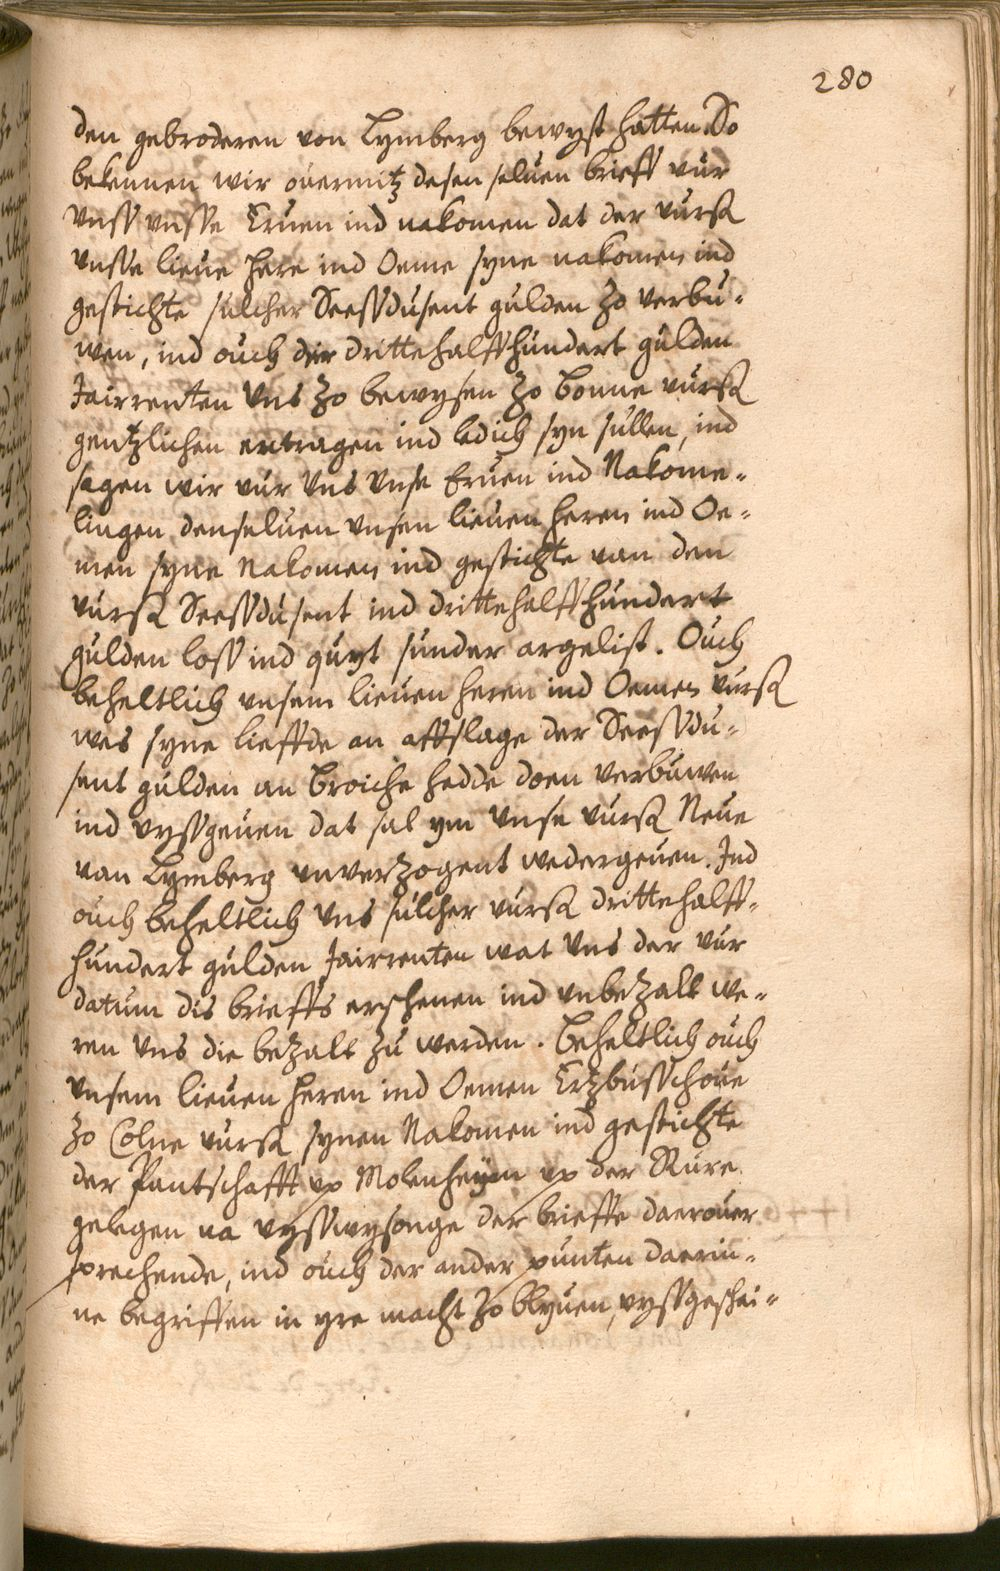 280
den gebroderen von Lymberg bewyst hatten. So
bekennen wir ouermitz desen seluen brieff vur
vnss vnsse Eruen ind nakomen dat der vurß
vnsse lieue Here ind Oeme syne nakomen ind
gestichte sulcher Seessdusent gulden zo verbu-
wen, ind ouch der drittehalffhundert gulden
Jairrenten vns zo bewysen zo Bonne vurß
gentzlichen entragen ind ledich syn sullen, ind
sagen wir vur vns vnse Eruen ind Nakome-
lingen denseluen vnsen lieuen heren ind Oe-
men syne Nakomen ind gestichte van den
vurß Seessdusent ind drittehalffhundert
gulden loss ind quyt sunder argelist. Ouch
beheltlich vnsem lieuen heren ind Oemen vurß
wes syne lieffde an affslage der Seessdu-
sent gulden an Broiche hedde doen verbuwen
ind vyssgeuen dat sal ym vnse vurß Neue
van Lymberg unverzogent wedergeuen. Ind
ouch beheltlich vns sulcher vurß drittehalff-
hundert gulden Jairrenten wat vns der vur
datum dis brieffs erschenen ind vnbezalt we-
ren vns die bezalt zu werden. Beheltlich ouch
vnsem lieuen heren ind Oemen Ertzbusschoue
zo Colne vurß synen Nakomen ind gestichte
der Pantschafft vp Molenheym vp der Rure
gelegen na vysswysonge der brieffe daerouer
sprechende, ind ouch der ander punten daerin-
ne begriffen in yre macht zo blyuen, vyssgeschei-